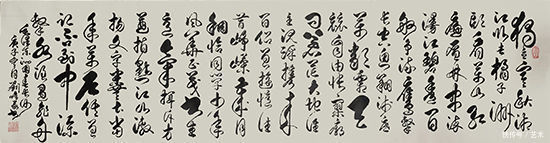 独立寒秋湘
江北去橘子洲
头看万山红
遍层林尽染
漫江碧透百
舸争流鹰击
长空鱼翔浅底
万类霜天
竞自由怅寥廓
问苍茫大地谁
主沉浮携来
百侣曾游忆往
昔峥嵘岁月稠
恰同学少年
风华正茂书生
意气挥斥方
遒指点江山激
扬文字粪土当
年万户侯曾
记否到中流
击水浪遏飞舟
毛泽东沁园春长沙
庚子 月刘
快传号/艺术